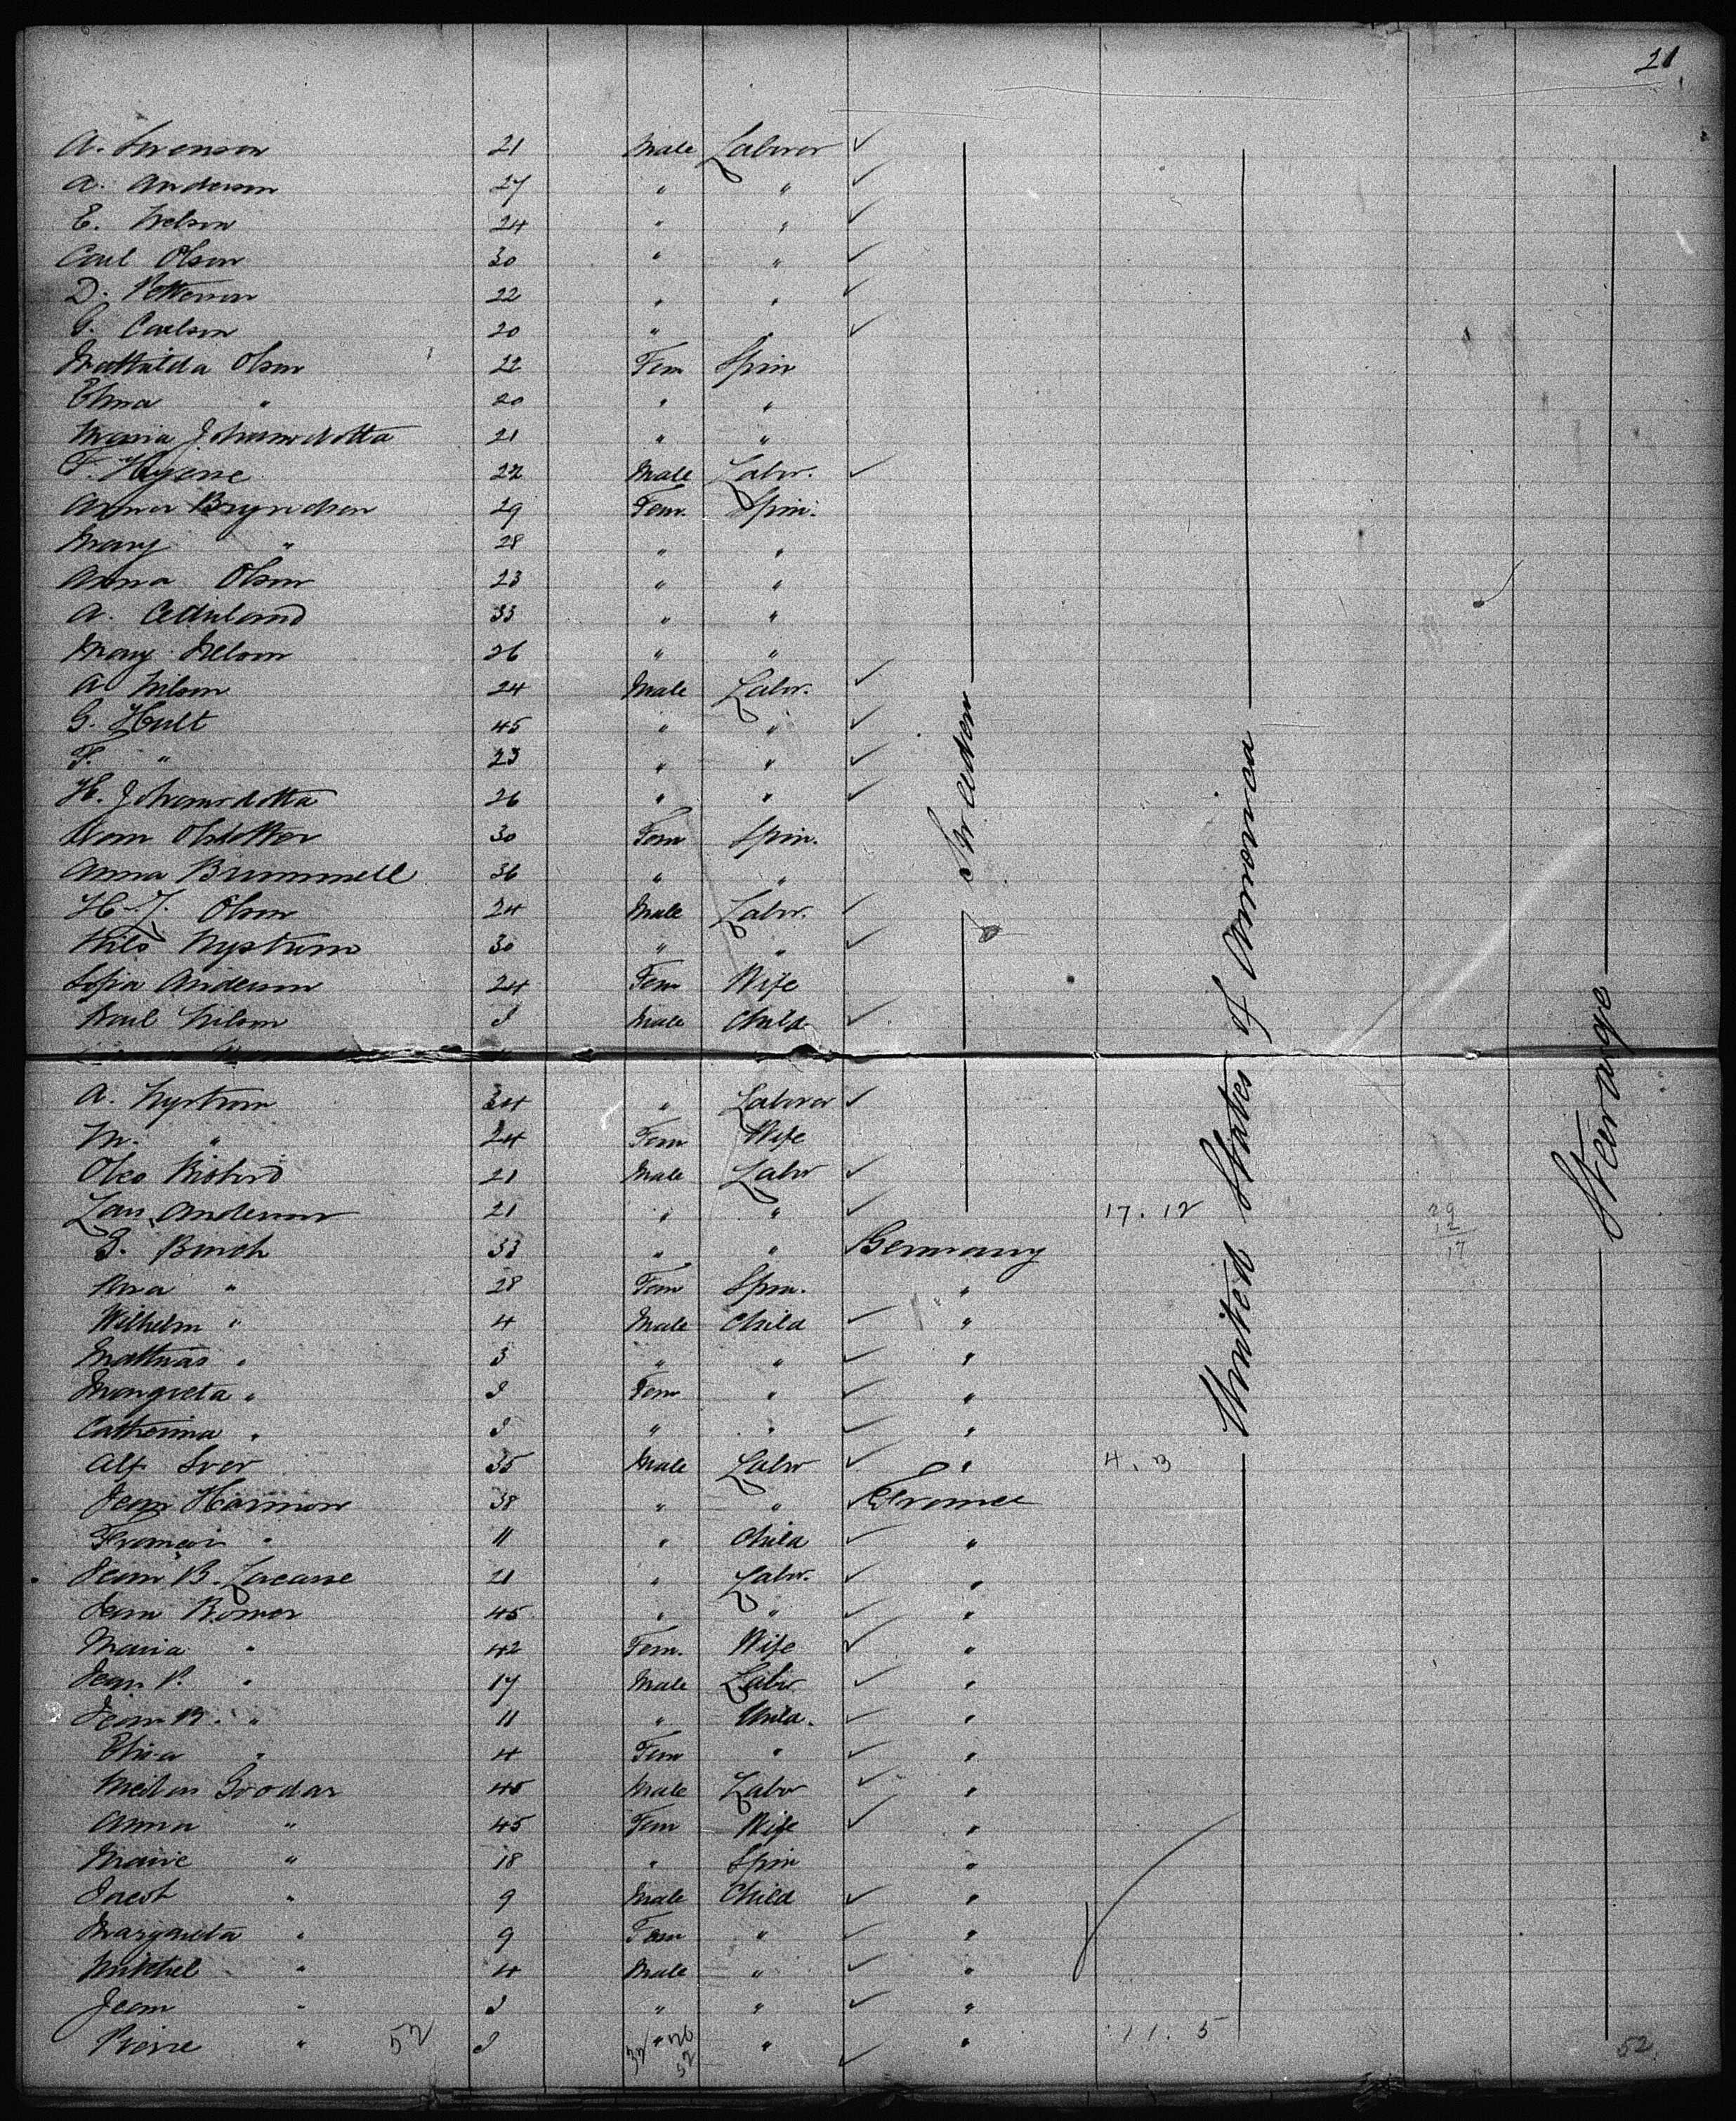 21
A. Swenson 21 Male Laborer ✓
A. Anderson 27 " " ✓
E. Nelson 24 " " ✓
Carl Olson 30 " " ✓
D. Petterson 22 " " ✓
G. Carlson 20 " " ✓
Mathilda Olson 22 Fem Spin
Elma " 20 " "
Maria Johansdotta 21 " "
F. 22 Male Labr. ✓
Anna 29 Fem. Spin.
Mary " 28 " "
Anna Olson 23 " "
A. 33 " "
Mary Nelson 26 " "
A. Nilson 24 Male Labr. ✓
G. Hult 45 " " ✓
F. " 23 " " ✓
H. Johansdotta 26 " " ✓
30 Fem Spin.
Anna Brummell 36 " "
H. J. Olson 24 Male Labr. ✓
Nils Nystrum 30 " " ✓
Sofia Anderson 24 Fem Wife
Karl Nilson Male Child ✓
Sweeden
A. Nystrom 34 " Laborer ✓
M. " 24 Fem Wife
21 Male Labr ✓
Lars Anderson 21 " " ✓ 17. 12
United States of America
Stearage
29
12
17
G. Busch 33 " " Germany
28 Fem Spin. "
Wilhelm " 4 Male Child ✓ "
Mathias " 3 " " ✓ "
Margreta " Fem " ✓ "
Catherina " " " ✓ "
Alf 35 Male Labr ✓ " 4. 3
Jean Harmon 38 " " ✓ France
Francois " 11 " Child ✓ "
Jean B. Lacasse 21 " Labr. ✓ "
Jean Romer 45 " " ✓ "
Maria " 42 Fem. Wife ✓ "
Jean P. " 17 Male Labr ✓ "
Jean B. " 11 " Child. ✓ "
Elisa " 4 Fem " ✓ "
Goodar 45 Male Labr ✓ "
Anna " 45 Fem Wife ✓ "
Marie " 18 " Spin "
Jacob " 9 Male Child ✓ "
Margareta " 9 Fem " ✓ "
Mikhel " 4 Male " ✓ "
Jean " " " ✓ "
Pierre " 52 " " ✓ " 11. 5
32/20
52
52